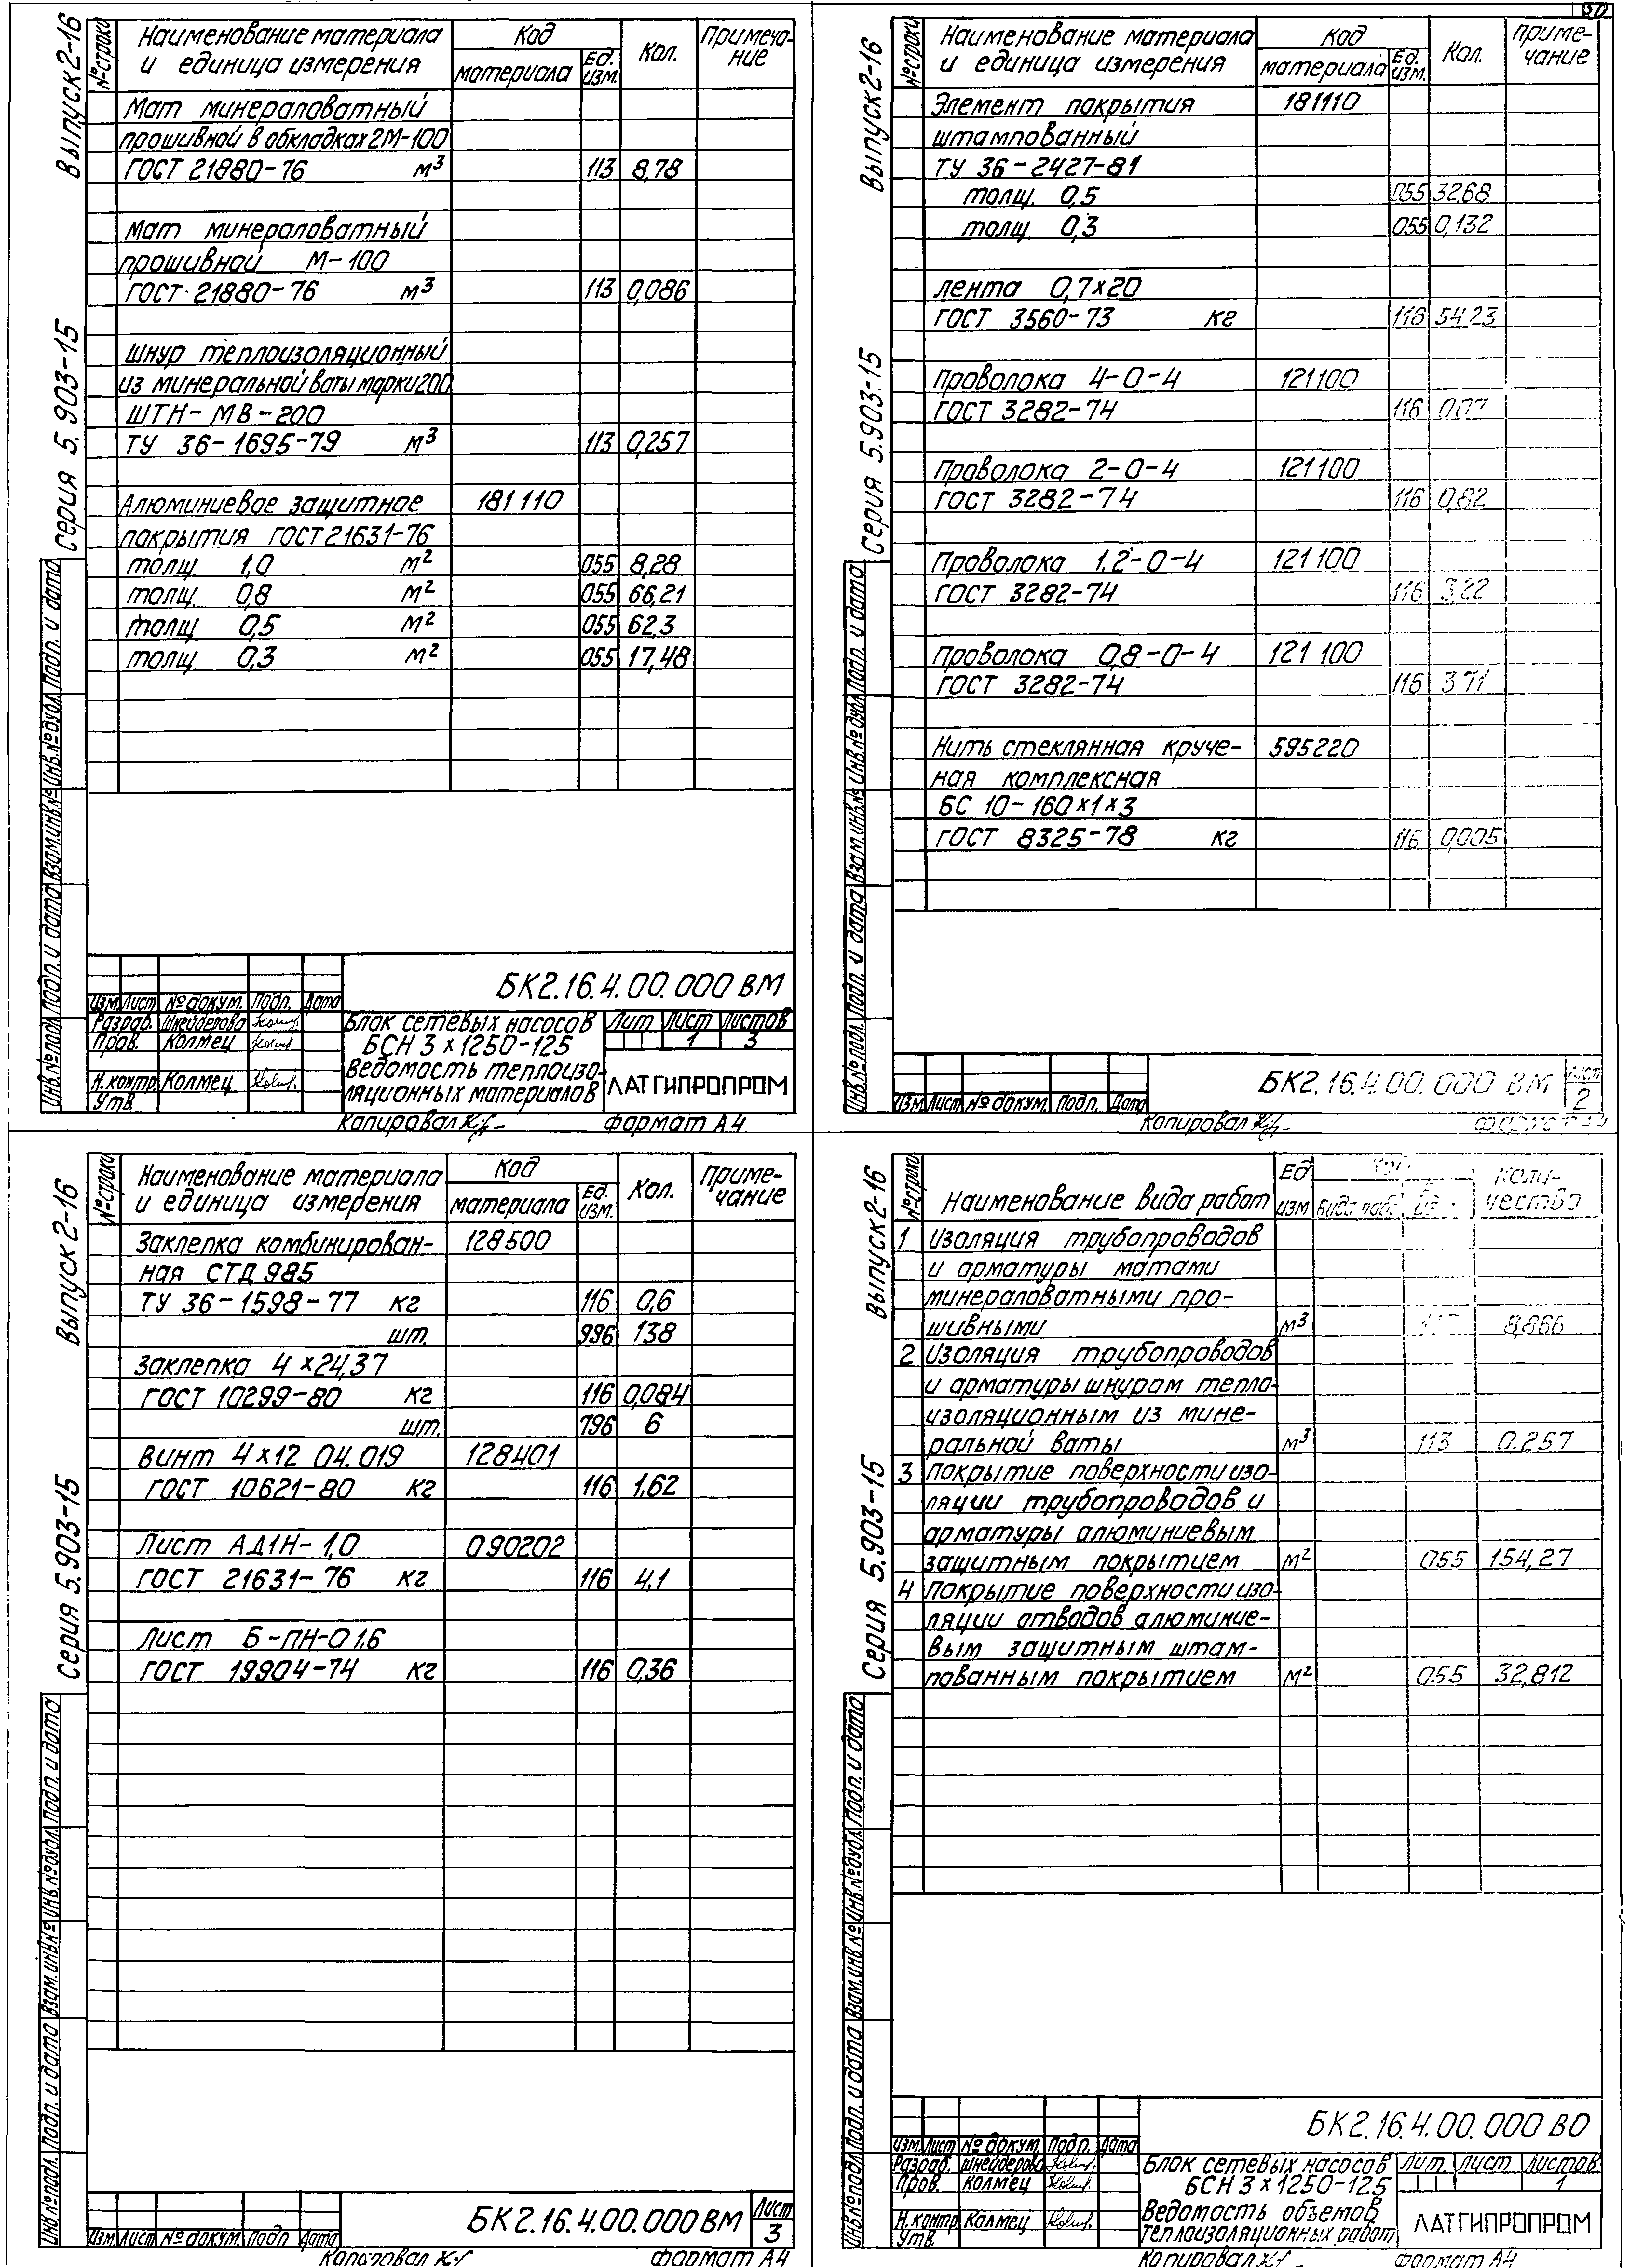 37
Выпуск 2-16
Серия 5.903-15
№ строки
Наименование материала и единица измерения
Код
материала
Ед. изм.
Кол.
Примечание
Мат минераловатный
прошивной в обкладках 2М-100
ГОСТ 21880-76 м³ 113 8,78
Мат минераловатный
прошивной М-100
ГОСТ 21880-76 м³ 113 0,086
Шнур теплоизоляционный
из минеральной ваты марки 200
ШТН-МВ-200
ТУ 36-1695-79 м³ 113 0,257
Алюминиевое защитное 181110
покрытия ГОСТ 21631-76
толщ. 1,0 м² 055 8,28
толщ. 0,8 м² 055 66,21
толщ. 0,5 м² 055 62,3
толщ. 0,3 м² 055 17,48
Инв.№ подл. Подп. и дата Взам.инв.№ Инв.№ дубл. Подп. и дата
БК2.16.4.00.000 ВМ
Изм. Лист № докум. Подп. Дата
Разраб. Шнейдерова
Пров. Колмец
Н.контр. Колмец
Утв.
Блок сетевых насосов
БСН 3×1250-125
Ведомость теплоизо-
ляционных материалов
Лит Лист Листов
1 3
ЛАТГИПРОПРОМ
Копировал
Формат А4
Выпуск 2-16
Серия 5.903-15
№ строки
Наименование материала
и единица измерения
Код
материала
Ед. изм.
Кол.
Приме-
чание
Элемент покрытия 181110
штампованный
ТУ 36-2427-81
толщ. 0,5 055 32,68
толщ 0,3 055 0,132
лента 0,7×20
ГОСТ 3560-73 кг 116 54,23
Проволока 4-0-4 121100
ГОСТ 3282-74 116 0,07
Проволока 2-0-4 121100
ГОСТ 3282-74 116 0,82
Проволока 1,2-0-4 121100
ГОСТ 3282-74 116 3,22
Проволока 0,8-0-4 121100
ГОСТ 3282-74 116 3,71
Нить стеклянная круче- 595220
ная комплексная
БС 10-160×1×3
ГОСТ 8325-78 кг 116 0,005
Инв.№ подл. Подп. и дата Взам.инв.№ Инв.№ дубл. Подп. и дата
Изм Лист № докум. Подп. Дата
БК2.16.4.00.000 ВМ
Лист
2
Копировал
Формат А4
Выпуск 2-16
Серия 5.903-15
№ строки
Наименование материала
и единица измерения
Код
материала
Ед. изм.
Кол.
Приме-
чание
Заклепка комбинирован- 128500
ная СТД 985
ТУ 36-1598-77 кг 116 0,6
шт. 996 138
Заклепка 4×24,37
ГОСТ 10299-80 кг 116 0,084
шт. 796 6
Винт 4×12 04.019 128401
ГОСТ 10621-80 кг 116 1,62
Лист АД1Н-1,0 090202
ГОСТ 21631-76 кг 116 4,1
Лист Б-ПН-О 1,6
ГОСТ 19904-74 кг 116 0,36
Инв.№ подл. Подп. и дата Взам.инв.№ Инв.№ дубл. Подп. и дата
Изм. Лист № докум. Подп Дата
БК2.16.4.00.000 ВМ
Лист
3
Копировал
Формат А4
Выпуск 2-16
Серия 5.903-15
№ строки
Наименование вида работ
Ед
изм
Вида раб.
Коли-
чество
1 Изоляция трубопроводов
и арматуры матами
минераловатными про-
шивными м³ 8,866
2 Изоляция трубопроводов
и арматуры шнуром тепло-
изоляционным из мине-
ральной ваты м³ 113 0.257
3 Покрытие поверхности изо-
ляции трубопроводов и
арматуры алюминиевым
защитным покрытием м² 055 154,27
4 Покрытие поверхности изо-
ляции отводов алюминие-
вым защитным штам-
пованным покрытием м² 055 32,812
Инв.№ подл. Подп. и дата Взам.инв.№ Инв.№ дубл. Подп. и дата
БК2.16.4.00.000 ВО
Изм. Лист № докум. Подп. Дата
Разраб. Шнейдерова
Пров. Колмец
Н.контр. Колмец
Утв.
Блок сетевых насосов
БСН 3×1250-125
Ведомость объемов
теплоизоляционных работ
Лит. Лист Листов
1
ЛАТГИПРОПРОМ
Копировал
Формат А4